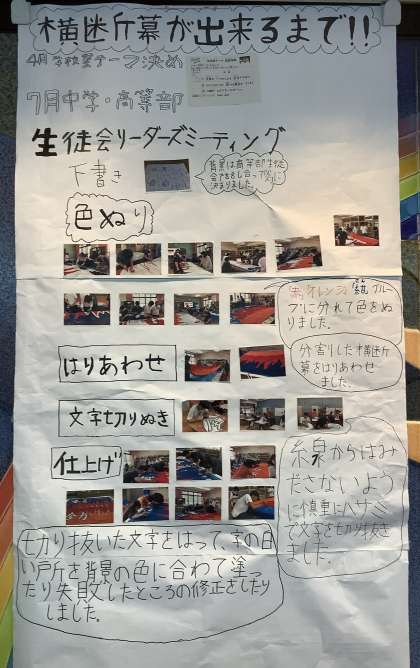 横断幕が出来るまで!!
4月 学校祭テーマ決め
7月 中学・高等部
生徒会リーダーズミーティング
下書き
背景は高等部生徒
決まりました。
色ぬり
赤、オレンジ、青、紫、グルー
プに分れて色をぬ
りました。
はりあわせ
分割りした横断
幕をはりあわせ
ました。
文字切りぬき
仕上げ
線からはみ
ださないよう
に慎重にハサミ
で文字を切り抜き
ました。
切り抜いた文字をはって、字の白
い所を背景の色に合わせて塗っ
たり失敗したところの修正をしたり
しました。